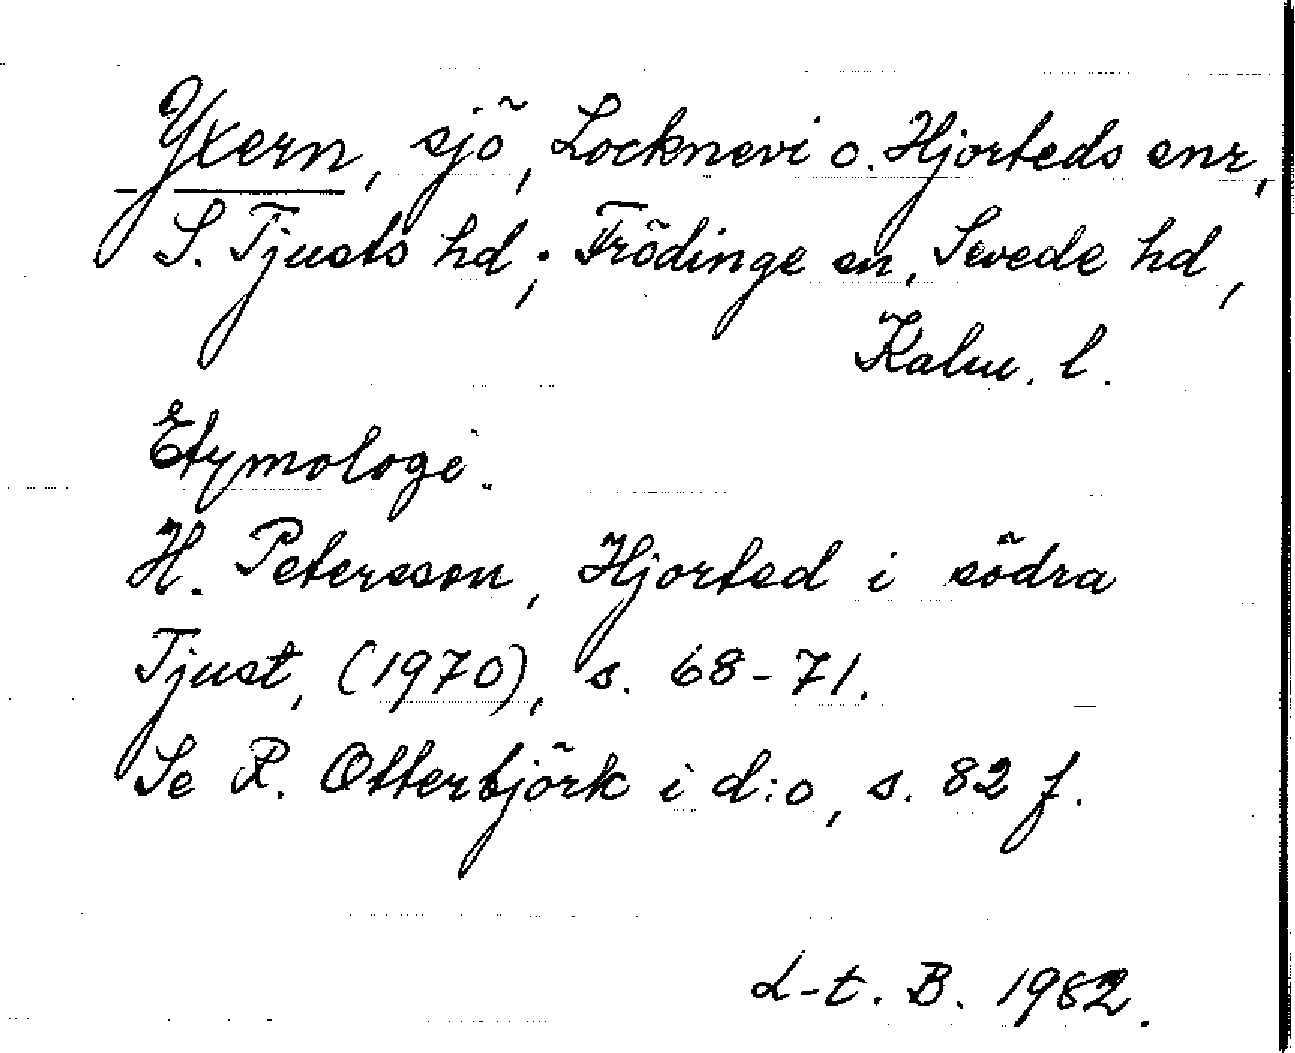 Yxern, sjö, Locknevi o. Hjorteds snr,
S. Tjusts hd; Frödinge sn, Sevede hd,
Kalm. l.
Etymologi.
H. Petersson, Hjorted i södra
Tjust, (1970), s. 68-71.
Se R. Otterbjörk i d:o, s. 82 f.
L-t. B. 1982.